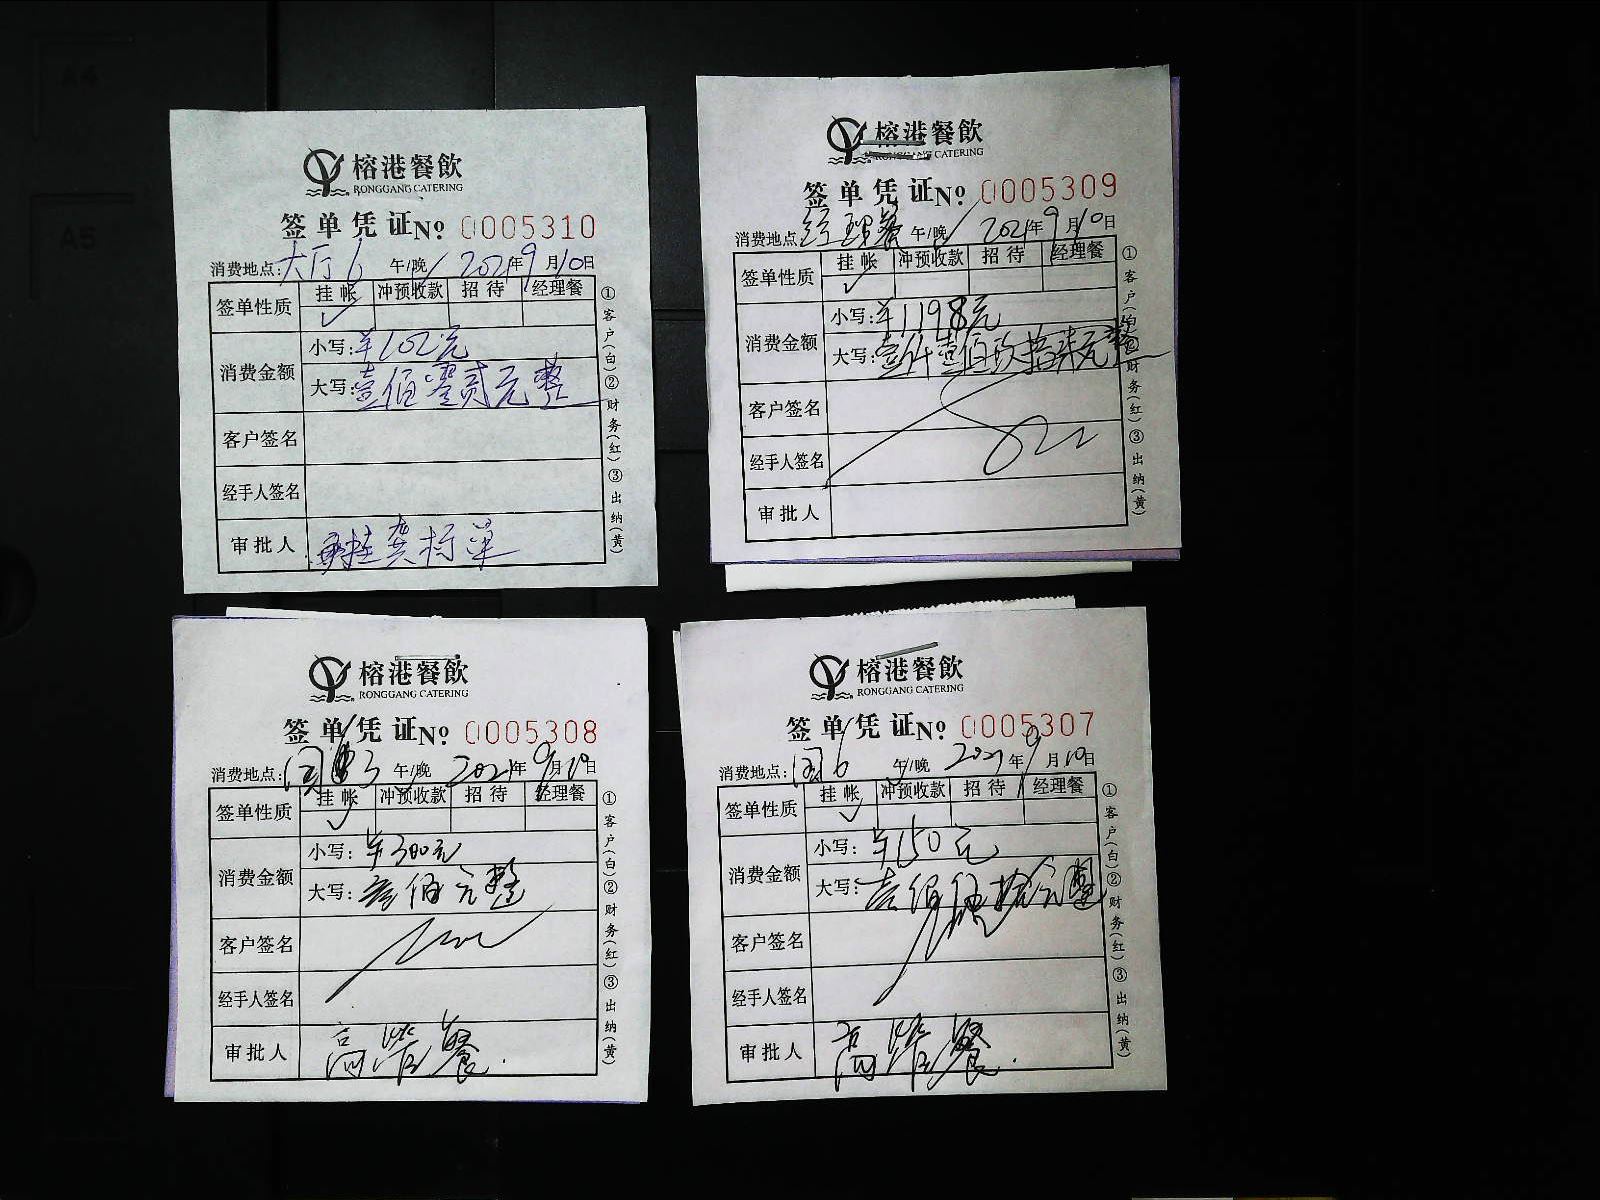 A4
A5
榕港餐飲
RONGGANG CATERING
签单凭证 No 0005310
消费地点: 大厅6 午/晚 2021年9月10日
签单性质 挂帐 冲预收款 招待 经理餐
✓
消费金额 小写: ¥102元
大写: 壹佰零贰元整
客户签名
经手人签名
审批人
①客户(白)②财务(红)③出纳(黄)
榕港餐飲
RONGGANG CATERING
签单凭证 No 0005309
消费地点: 经理餐 午/晚 2021年9月10日
签单性质 挂帐 冲预收款 招待 经理餐
✓
消费金额 小写: ¥1198元
大写: 壹仟壹佰玖拾柒元整
客户签名
经手人签名
审批人
①客户(白)②财务(红)③出纳(黄)
榕港餐飲
RONGGANG CATERING
签单凭证 No 0005308
消费地点: 3 午/晚 2021年9月10日
签单性质 挂帐 冲预收款 招待 经理餐
✓
消费金额 小写: ¥300元
大写: 叁佰元整
客户签名
经手人签名
审批人 高管餐
①客户(白)②财务(红)③出纳(黄)
榕港餐飲
RONGGANG CATERING
签单凭证 No 0005307
消费地点: 6 午/晚 2021年9月10日
签单性质 挂帐 冲预收款 招待 经理餐
✓
消费金额 小写: ¥150元
大写: 壹佰伍拾元整
客户签名
经手人签名
审批人 高管餐
①客户(白)②财务(红)③出纳(黄)